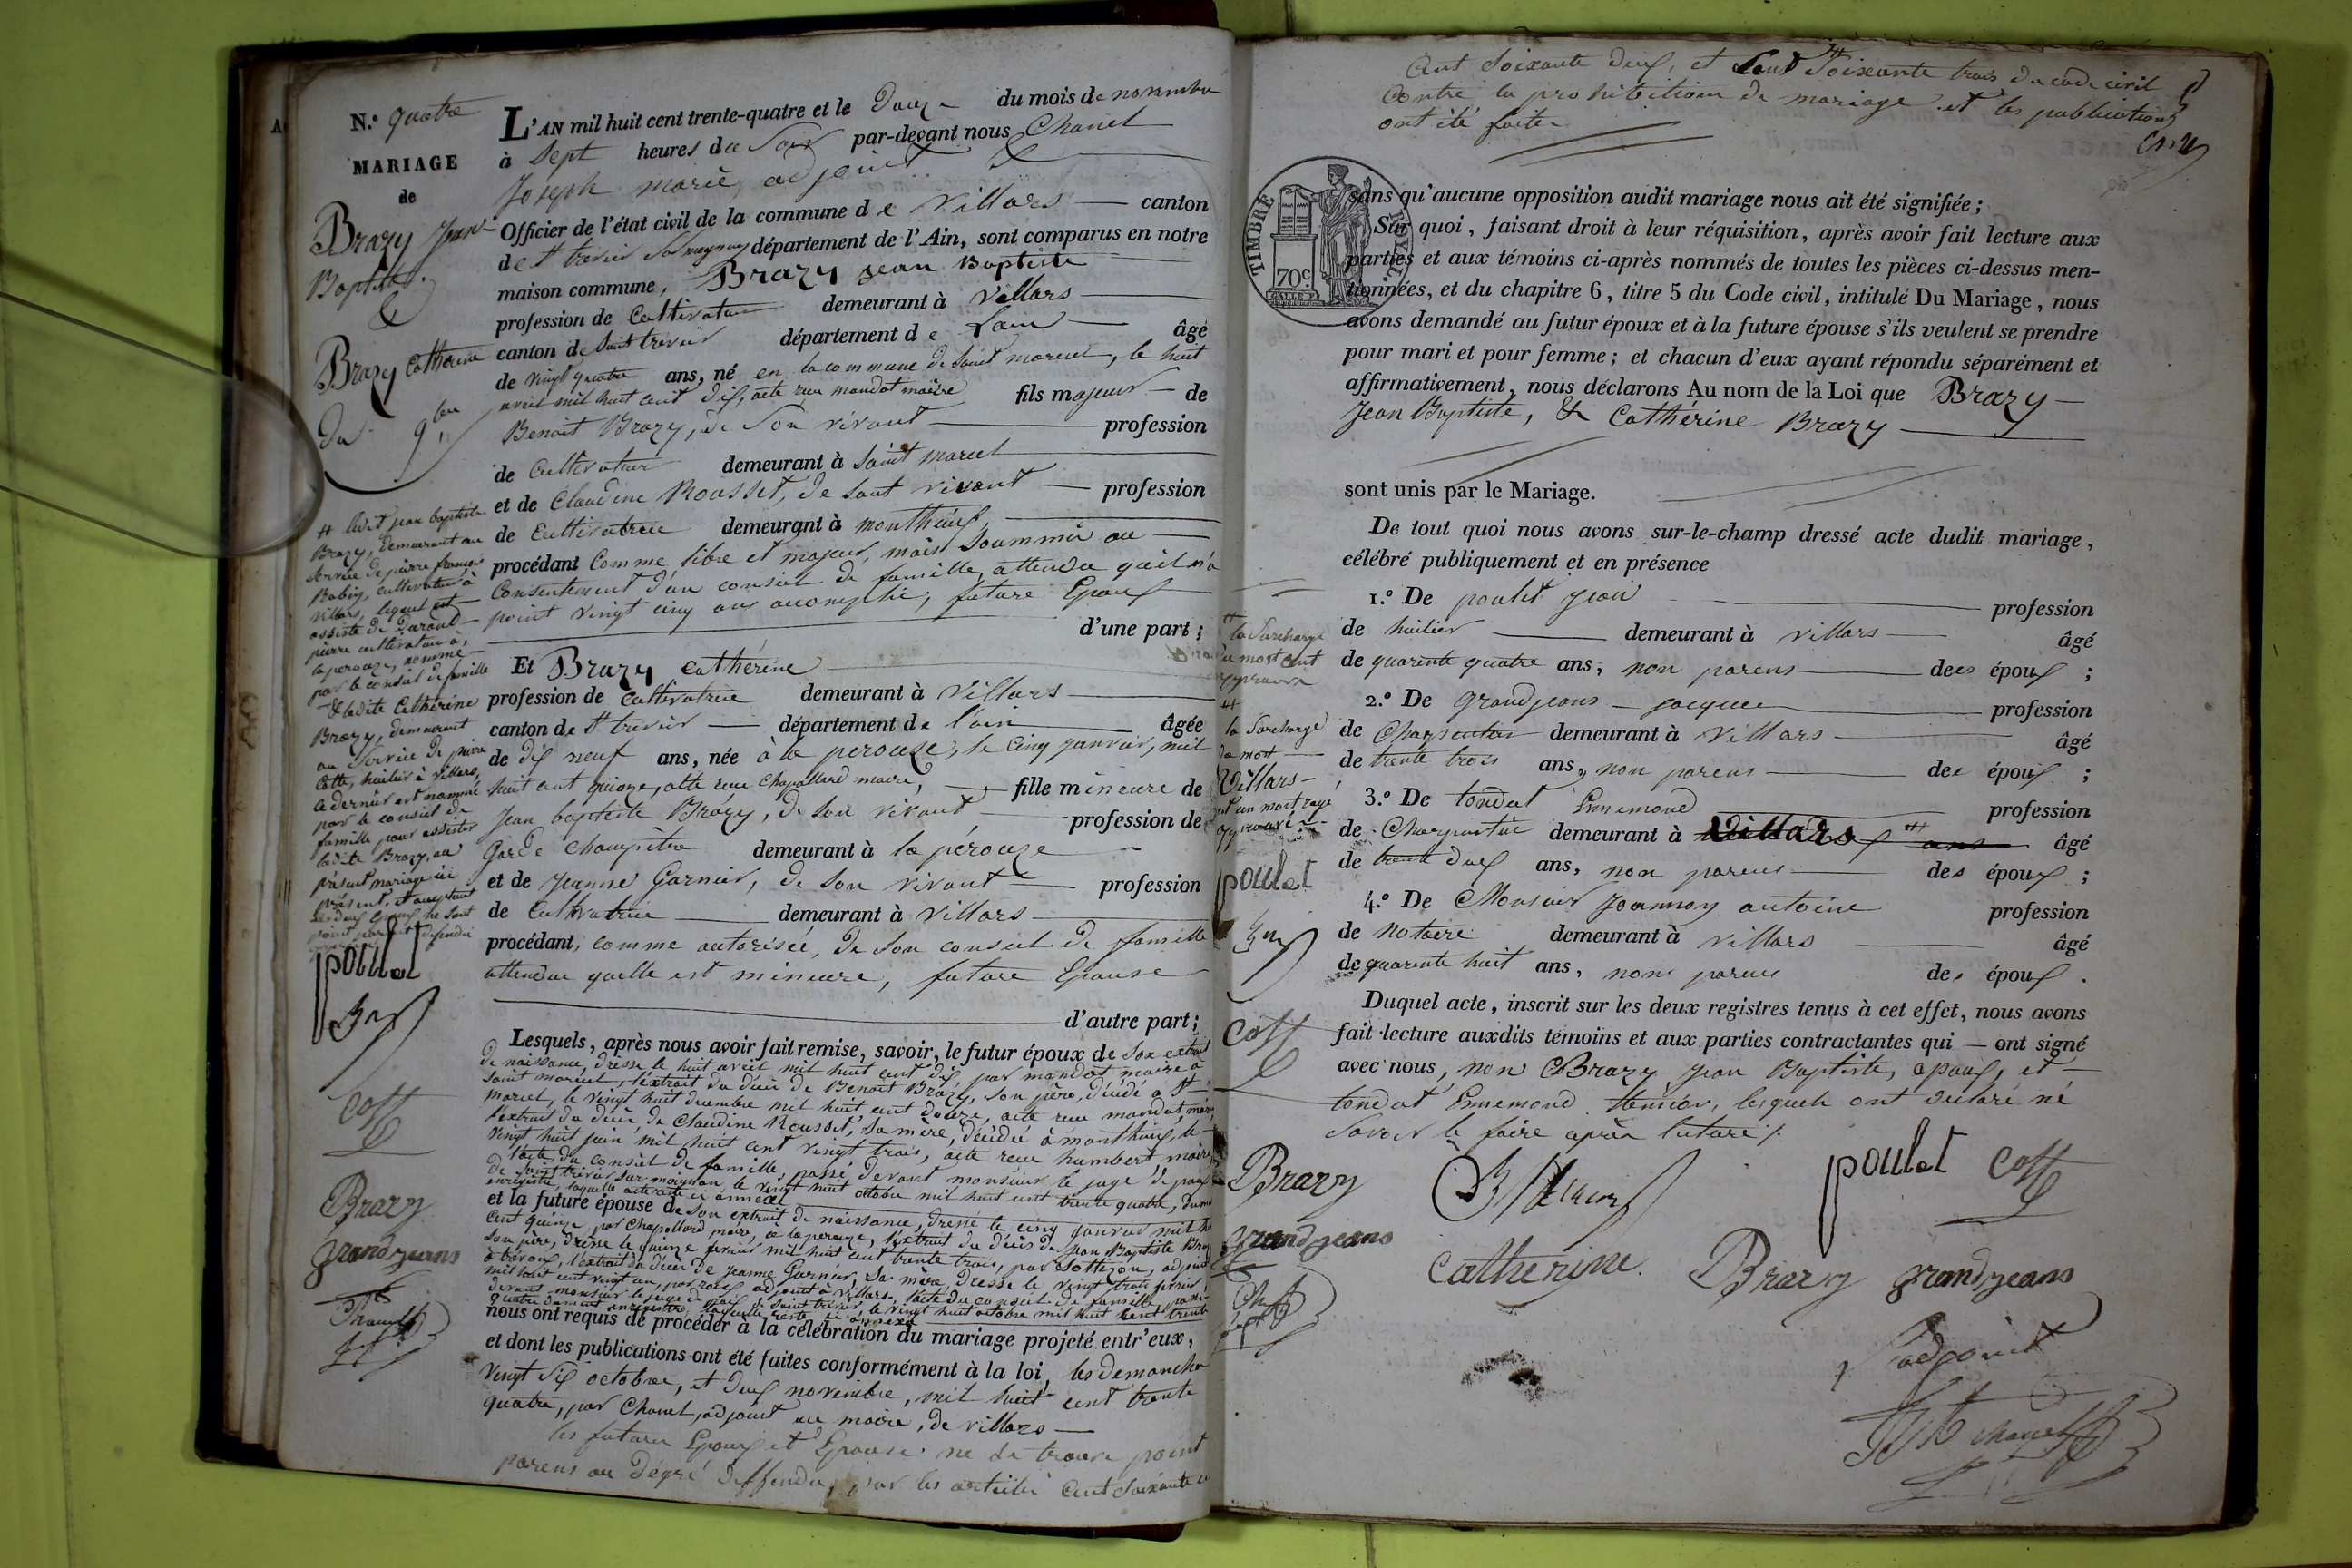 N.º quatre
MARIAGE
de
Brazy Jean
Baptiste
&
Brazy Catherine
Du 9bre
L'AN mil huit cent trente-quatre et le Douze du mois de novembre
à Sept heures du Soir par-devant nous Chanel
Joseph marie, adjoint
Officier de l'état civil de la commune de Villars canton
de St trivier département de l'Ain, sont comparus en notre
maison commune, Brazy Jean Baptiste
profession de Cultivateur demeurant à Villars
canton de Saint trivier département de Lain âgé
de vingt quatre ans, né en la commune de Saint marcel, le huit
avril mil huit cent dix, acte reçu mandot maire fils majeur de
Benoit Brazy, de Son vivant profession
de Cultivateur demeurant à Saint marcel
et de Claudine Rousset, de Sont vivant profession
de Cultivatrice demeurant à monthieux
procédant Comme libre et majeur, mais Soummis au
Consentement d'un conseil de famille, attendu qu'il n'a
point vingt cinq ans accomplis, future Epoux
d'une part;
Et Brazy Cathérine
profession de Cultivatrice demeurant à Villars
canton de St trivier département de l'ain âgée
de dix neuf ans, née à la perouze, le Cinq janvier, mil
huit cent quinze, acte reçu Chapolard maire, fille mineure de
Jean baptiste Brazy, de son vivant profession de
Garde Champêtre demeurant à la pérouze
et de Jeanne Garnier, de Son vivant profession
de Cultivatrice demeurant à Villars
procédant, comme autorisée, de Son conseil de famille
attendue qu'elle est mineure, future Epouse
d'autre part;
Lesquels, après nous avoir fait remise, savoir, le futur époux de Son extrait
de naissance, dressé le huit avril mil huit cent dix, par mandot maire à
Saint marcel, l'extrait du décès de Benoit Brazy, Son père, décédé à St
marcel, le vingt huit decembre mil huit cent douze, acte reçu mandot maire
l'extrait du décès de Claudine Rousset, Sa mère, décédée à monthieux, le
vingt huit juin mil huit cent vingt trois, acte reçu humbert, maire
l'acte du conseil de famille, passé devant monsieur le juge de paix
de Saint trivier Sur moignan le vingt huit octobre mil huit cent trente quatre,
enregistré, laquelle acte reste ci annexé
et la future épouse de Son extrait de naissance, dressé le cinq janvier mil
Cent quinze, par Chapollard maire, à la perouze, l'extrait du décès de Jean Baptiste Brazy
Son père, dressé le quinze fevrier mil huit cent trente trois, par adjoint
l'extrait du décès de Jeanne Garnier, Sa mère, dressé le vingt trois
mil huit cent vingt un, par adjoint à Villars, l'acte du conseil de famille
devant monsieur le juge de paix de Saint trivier, le vingt huit octobre mil huit cent trente
quatre enregistré, laquelle reste ci annexé
nous ont requis de procéder à la célébration du mariage projeté entr'eux,
et dont les publications ont été faites conformément à la loi, les Demanche
vingt Six octobre, et deux novembre, mil huit cent trente
quatre, par Chanel, adjoint au maire, de villars
les futures Epoux et Epouse ne Se trouve point
parens au Dégré deffendu, par les articles Cent Soixante
ledit jean baptiste
Brazy, demeurant au
Service de pierre françois
cultivateur à
Villars, lequel est
assisté de
pierre cultivateur à
la perouze, nommé
par le conseil de famille
& ladite Cathérine
Brazy, demeurant
au Service de pierre
Cotte, huilier à Villars,
Ce dernier est nommé
par le conseil de
famille pour assister
ladite Brazy, au
présent mariage
poulet
Cott
Brazy
grandjeans
Cent Soixante deux, et Cent Soixante trois du code civil
Contre la prohibitions de mariage et les publications
ont été faite
TIMBRE
70c.
sans qu'aucune opposition audit mariage nous ait été signifiée;
Sur quoi, faisant droit à leur réquisition, après avoir fait lecture aux
parties et aux témoins ci-après nommés de toutes les pièces ci-dessus men-
tionnées, et du chapitre 6, titre 5 du Code civil, intitulé Du Mariage, nous
avons demandé au futur époux et à la future épouse s'ils veulent se prendre
pour mari et pour femme; et chacun d'eux ayant répondu séparément et
affirmativement, nous déclarons Au nom de la Loi que Brazy
Jean Baptiste, & Cathérine Brazy
sont unis par le Mariage.
De tout quoi nous avons sur-le-champ dressé acte dudit mariage,
célébré publiquement et en présence
1.º De poulet jean profession
de huilier demeurant à villars âgé
de quarente quatre ans, non parens des époux;
2.º De grandjeans jacques profession
de Charpentier demeurant à Villars âgé
de trente trois ans, non parens des époux;
3.º De tondat Ennemond profession
de Charpentier demeurant à Villars âgé
de trente deux ans, non parens des époux;
4.º De Monsieur Joannon antoine profession
de Notaire demeurant à villars âgé
de quarente huit ans, non parens des époux.
Duquel acte, inscrit sur les deux registres tenus à cet effet, nous avons
fait lecture auxdits témoins et aux parties contractantes qui ont signé
avec nous, non Brazy Jean Baptiste, époux, et
tondat Ennemond témoin, lesquels ont déclaré ne
Savoir le faire après lecture
la Surcharge
du mot Cent
approuvé
la Surcharge
du mot
Villars
et un mot rayé
approuvé
poulet
Cott
Brazy
grandjeans
poulet Cott
Catherine Brazy grandjeans
adjoint
chanel